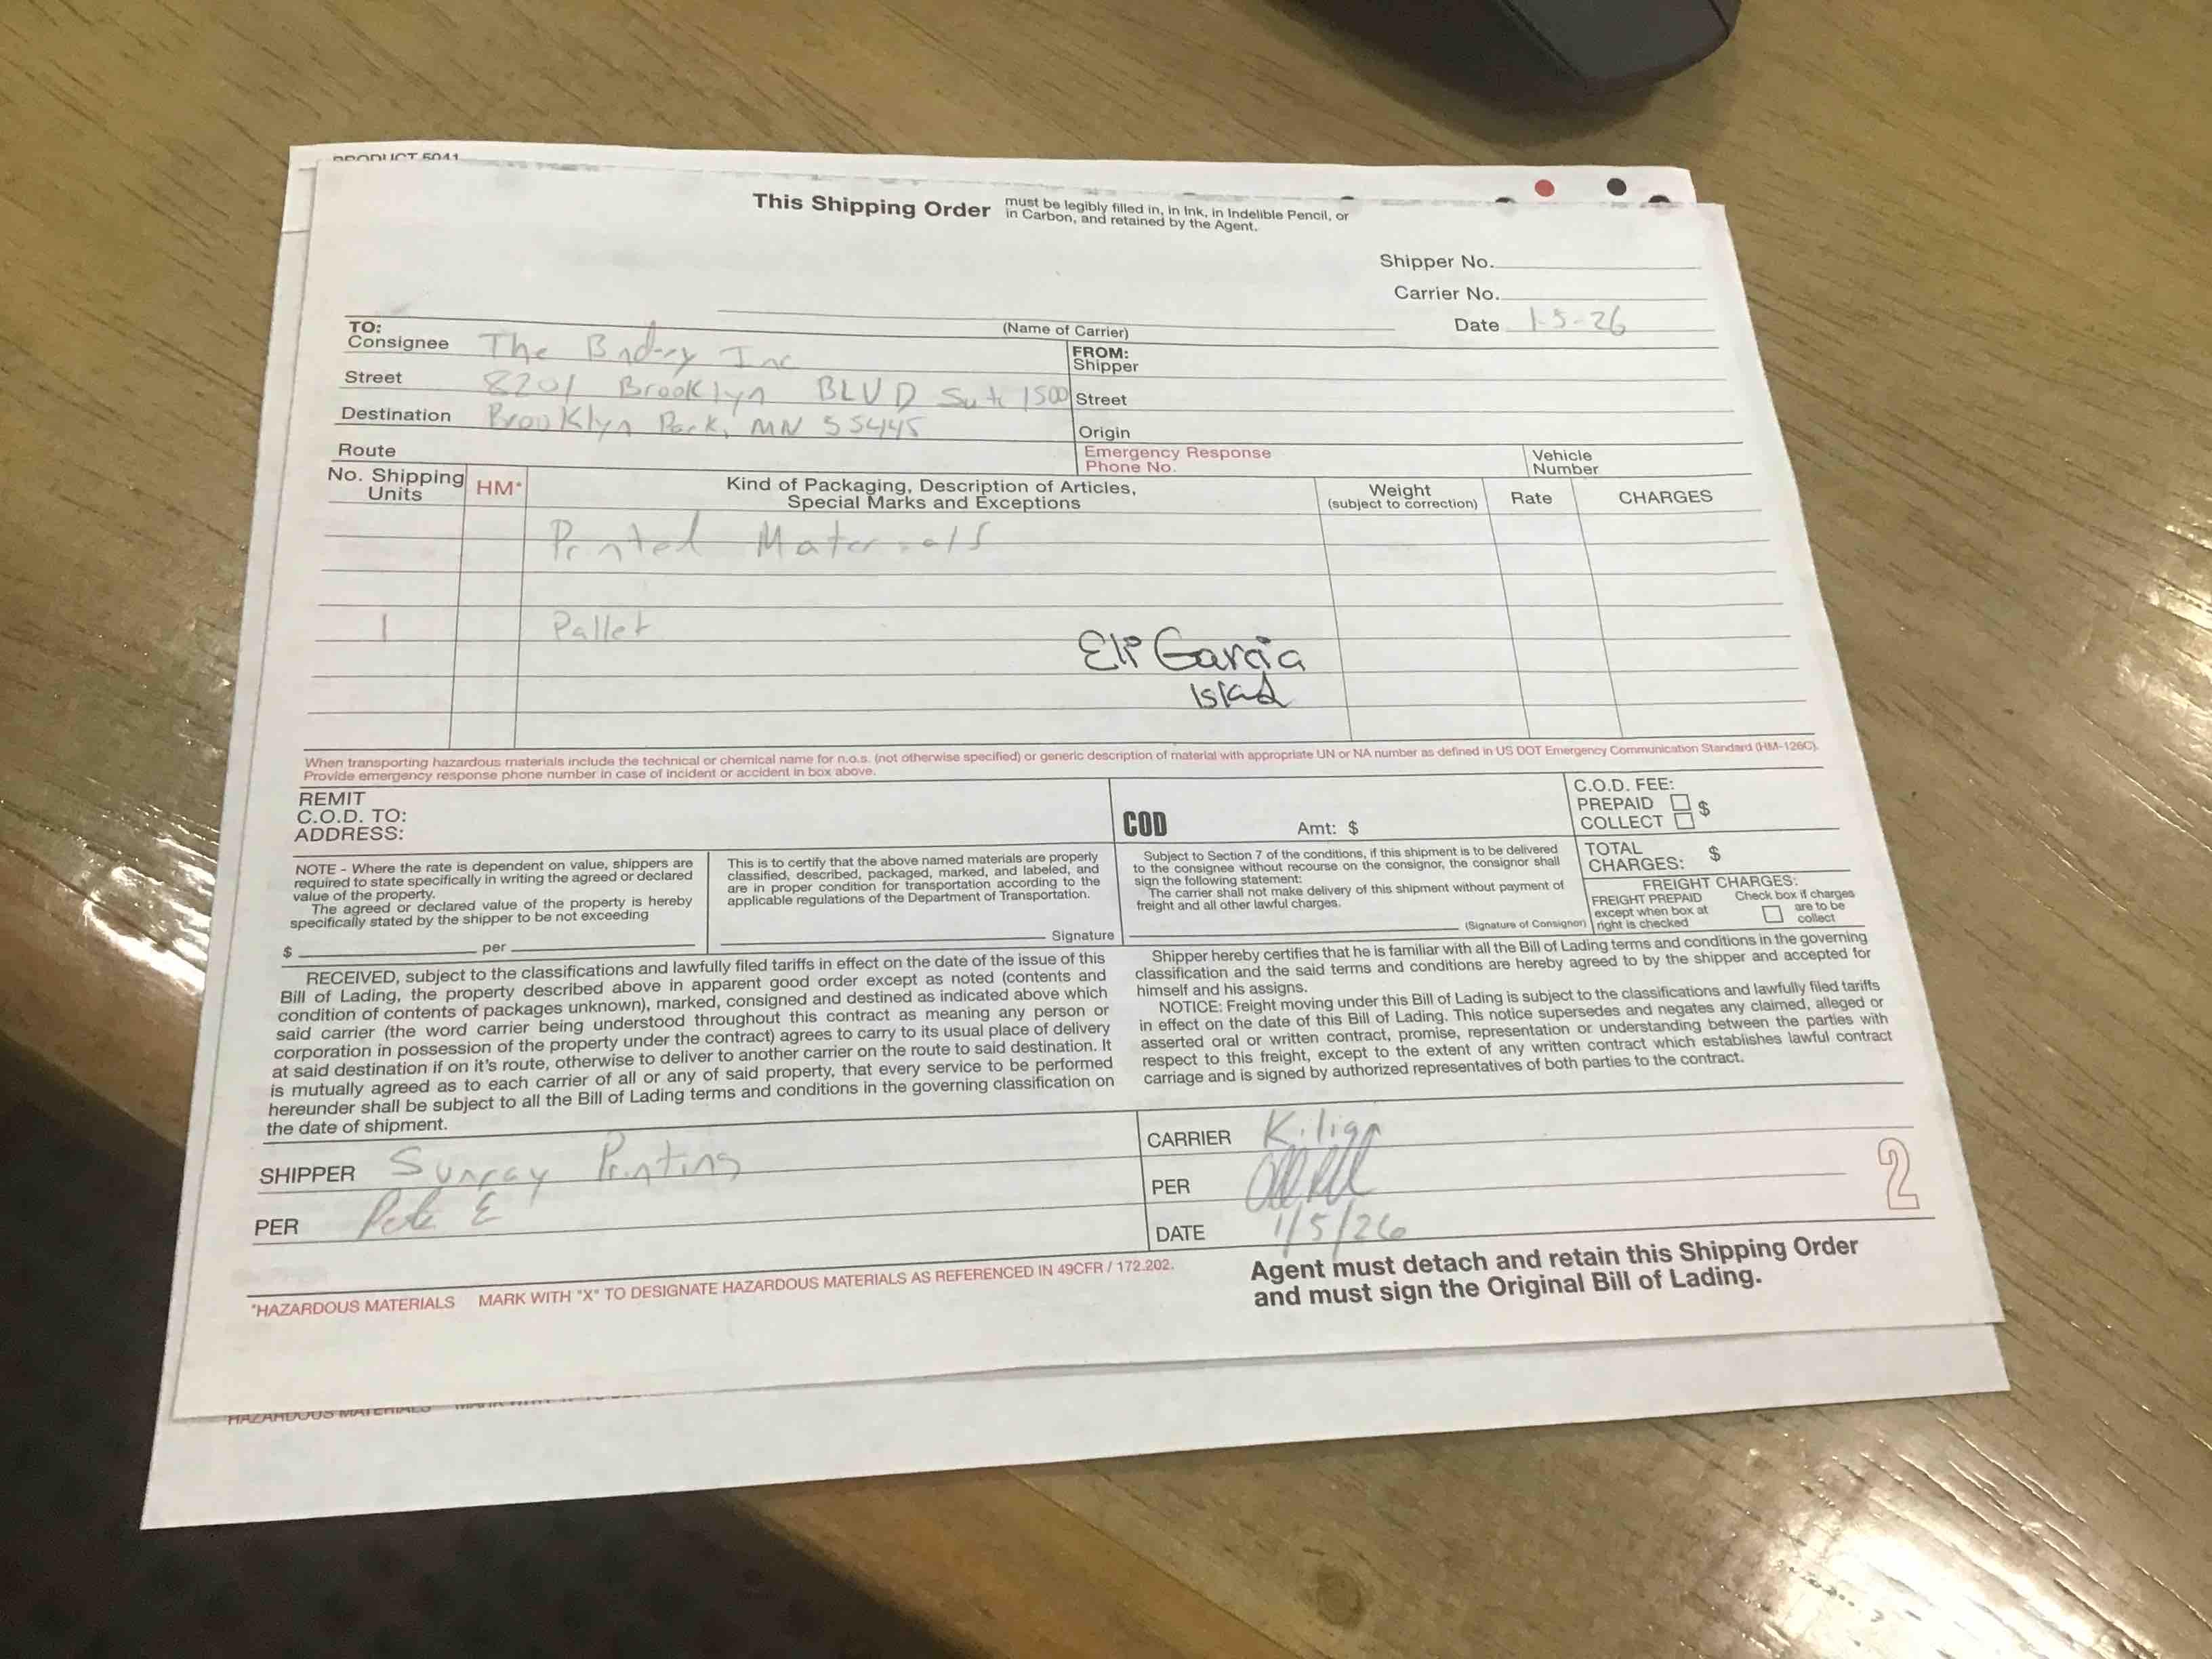 PRODUCT 5041
This Shipping Order must be legibly filled in, in Ink, in Indelible Pencil, or
in Carbon, and retained by the Agent.
Shipper No.
Carrier No.
Date 1-5-26
(Name of Carrier)
TO:
Consignee The Bndery Inc
Street 8201 Brooklyn BLVD Sute 1500
Destination Brooklyn Park, MN 55445
Route
FROM:
Shipper
Street
Origin
Emergency Response
Phone No.
Vehicle
Number
No. Shipping
Units
HM*
Kind of Packaging, Description of Articles,
Special Marks and Exceptions
Weight
(subject to correction)
Rate
CHARGES
Printed Materials
1 Pallet
Garcia
When transporting hazardous materials include the technical or chemical name for n.o.s. (not otherwise specified) or generic description of material with appropriate UN or NA number as defined in US DOT Emergency Communication Standard (HM-126C).
Provide emergency response phone number in case of incident or accident in box above.
REMIT
C.O.D. TO:
ADDRESS:
COD Amt: $
C.O.D. FEE:
PREPAID
COLLECT $
NOTE - Where the rate is dependent on value, shippers are
required to state specifically in writing the agreed or declared
value of the property.
The agreed or declared value of the property is hereby
specifically stated by the shipper to be not exceeding
$ per
This is to certify that the above named materials are properly
classified, described, packaged, marked, and labeled, and
are in proper condition for transportation according to the
applicable regulations of the Department of Transportation.
Signature
Subject to Section 7 of the conditions, if this shipment is to be delivered
to the consignee without recourse on the consignor, the consignor shall
sign the following statement:
The carrier shall not make delivery of this shipment without payment of
freight and all other lawful charges.
(Signature of Consignor)
TOTAL
CHARGES: $
FREIGHT CHARGES:
FREIGHT PREPAID
except when box at
right is checked
Check box if charges
are to be
collect
RECEIVED, subject to the classifications and lawfully filed tariffs in effect on the date of the issue of this
Bill of Lading, the property described above in apparent good order except as noted (contents and
condition of contents of packages unknown), marked, consigned and destined as indicated above which
said carrier (the word carrier being understood throughout this contract as meaning any person or
corporation in possession of the property under the contract) agrees to carry to its usual place of delivery
at said destination if on it's route, otherwise to deliver to another carrier on the route to said destination. It
is mutually agreed as to each carrier of all or any of said property, that every service to be performed
hereunder shall be subject to all the Bill of Lading terms and conditions in the governing classification on
the date of shipment.
Shipper hereby certifies that he is familiar with all the Bill of Lading terms and conditions in the governing
classification and the said terms and conditions are hereby agreed to by the shipper and accepted for
himself and his assigns.
NOTICE: Freight moving under this Bill of Lading is subject to the classifications and lawfully filed tariffs
in effect on the date of this Bill of Lading. This notice supersedes and negates any claimed, alleged or
asserted oral or written contract, promise, representation or understanding between the parties with
respect to this freight, except to the extent of any written contract which establishes lawful contract
carriage and is signed by authorized representatives of both parties to the contract.
SHIPPER Sunray Printing
PER Pete E
CARRIER Kilian
PER
DATE 1/5/26
2
*HAZARDOUS MATERIALS MARK WITH "X" TO DESIGNATE HAZARDOUS MATERIALS AS REFERENCED IN 49CFR / 172.202.
Agent must detach and retain this Shipping Order
and must sign the Original Bill of Lading.
HAZARDOUS MATERIALS